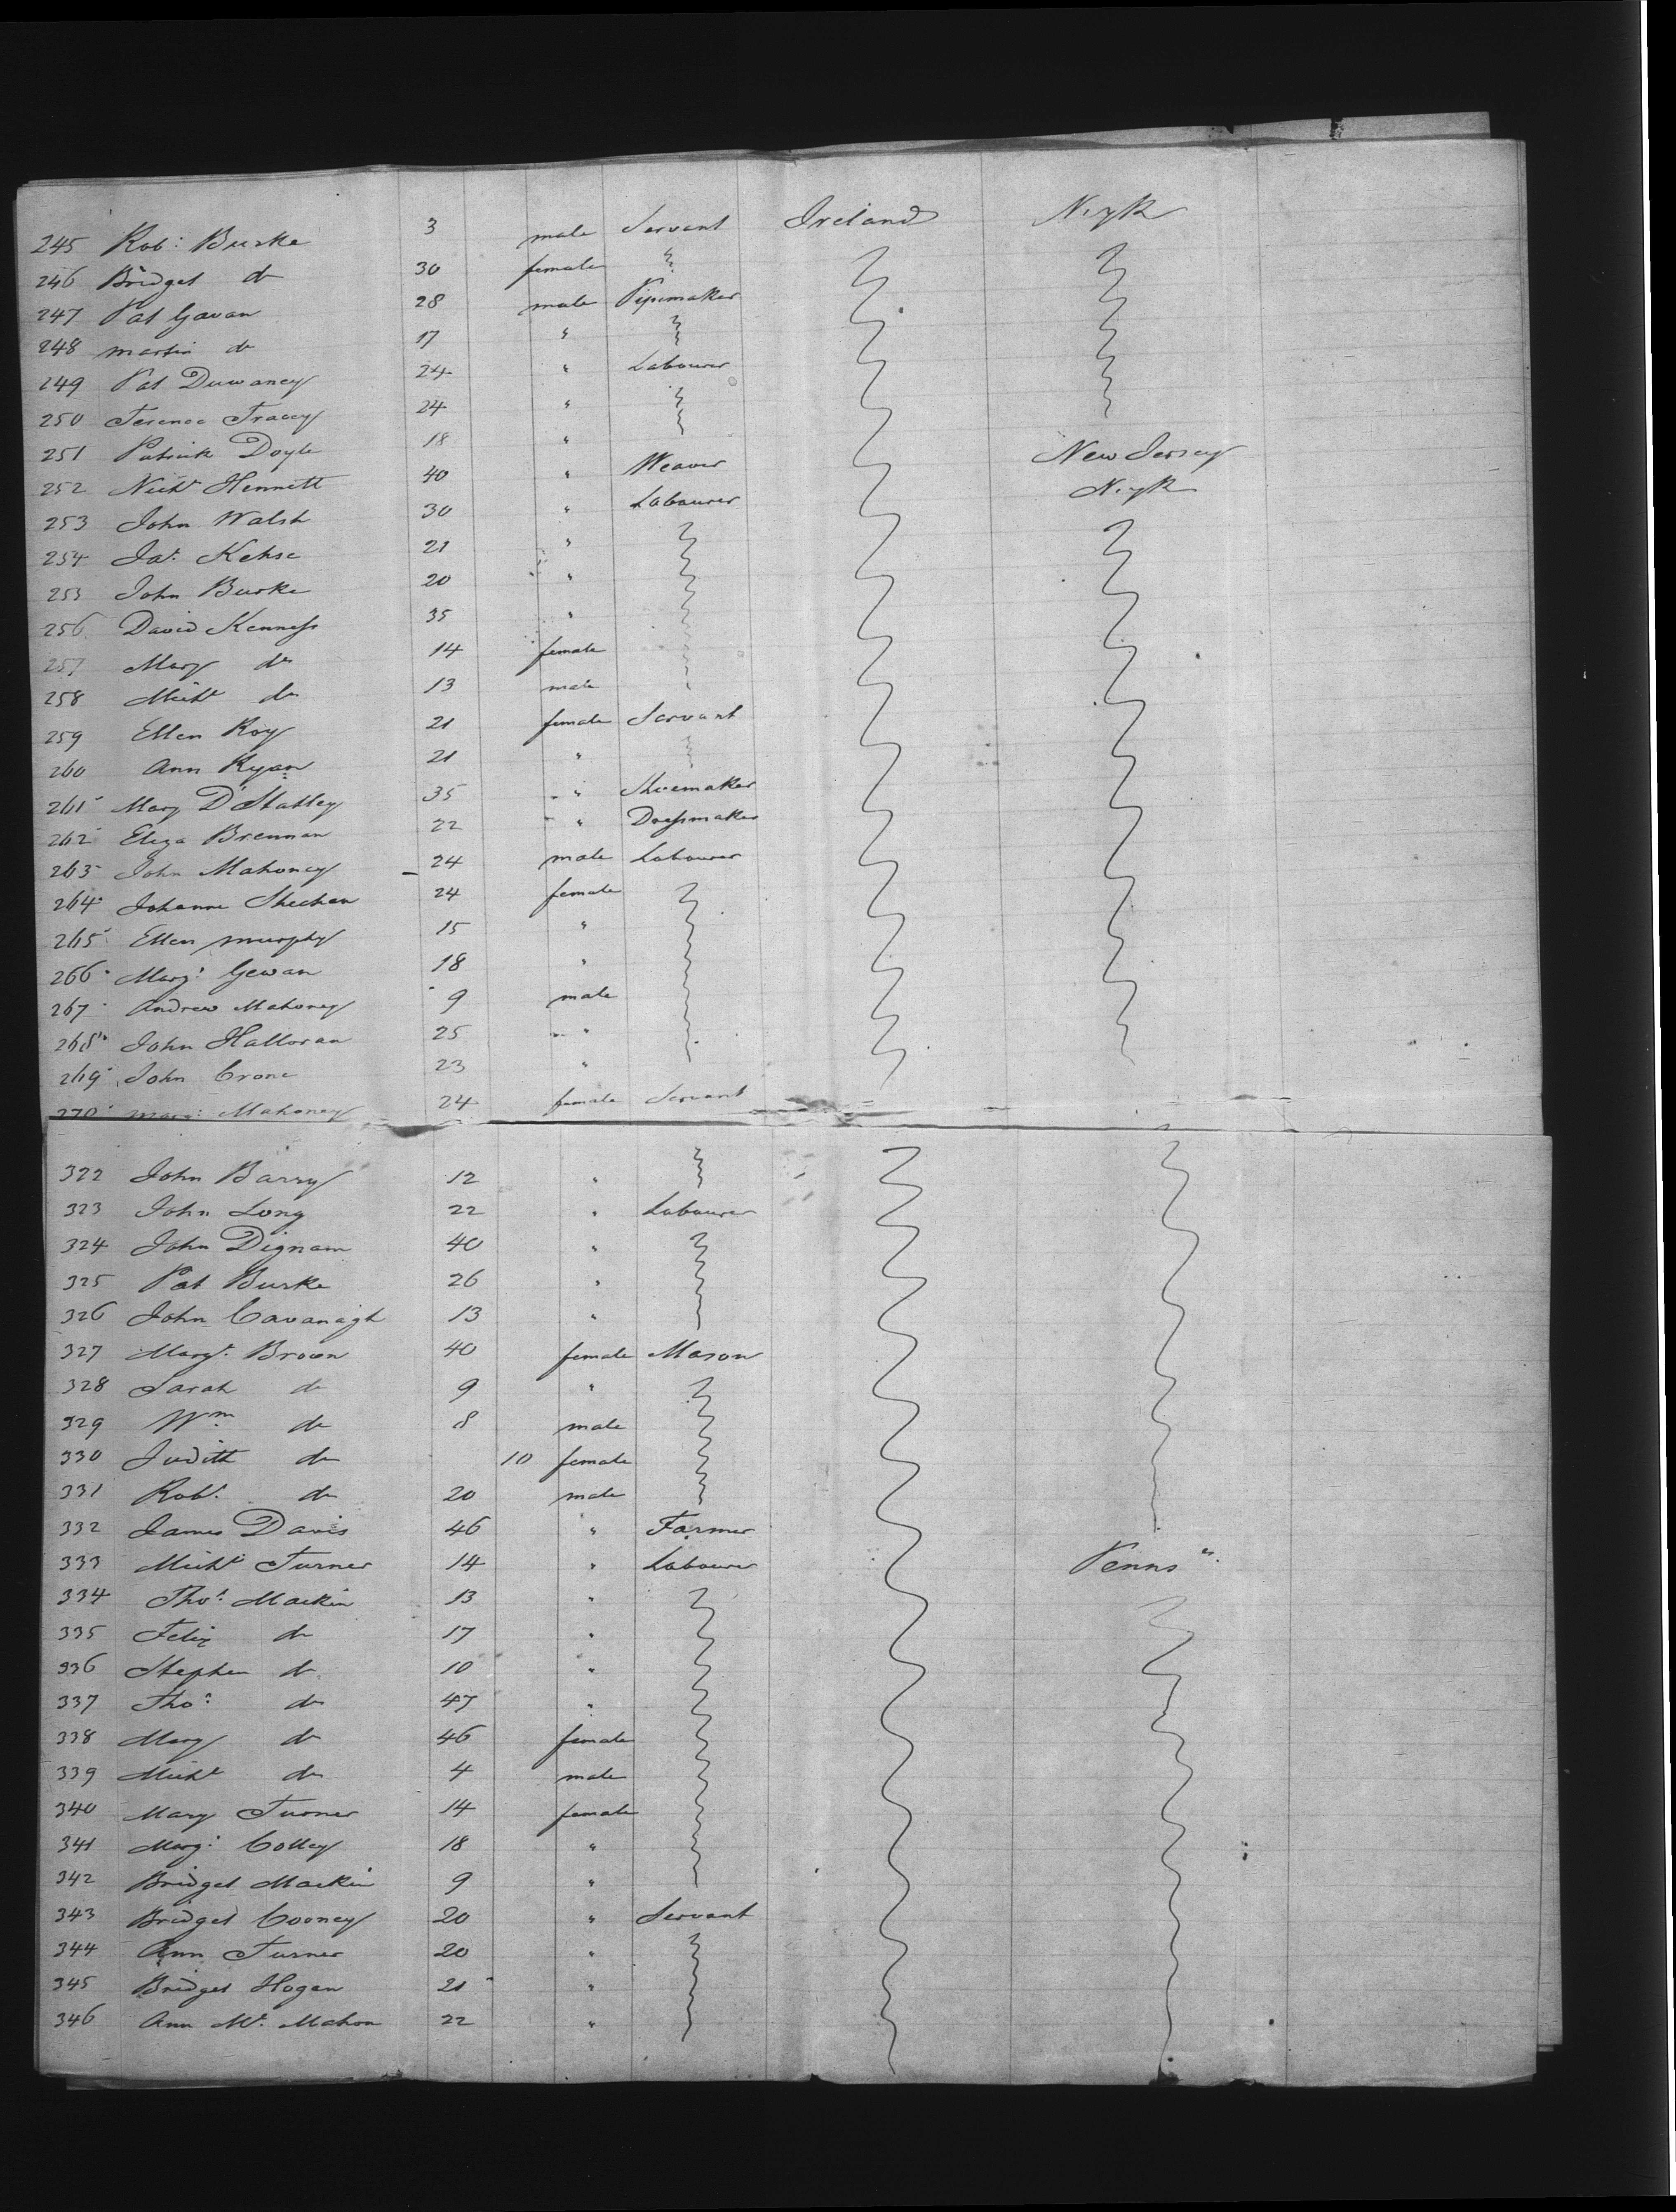 245 Rob: Burke 3 male Servant Ireland N. yk
246 Bridget do 30 female
247 Pat Gavan 28 male Pipemaker
248 martin do 17 "
249 Pat Duwaney 24 " Labourer
250 Terence Tracey 24 "
251 Patrick Doyle 18 " New Jersey
252 Nichs Hennett 40 " Weaver N. yk
253 John Walsh 30 " Labourer
254 Jas. Kehse 21 "
253 John Burke 20 "
256 David Kenness 35 "
257 Mary do 14 female
258 Michl do 13 male
259 Ellen Roy 21 female Servant
260 Ann Ryan 21 "
261 Mary D'Statley 35 " Shoemaker
262 Eliza Brennan 22 " Dressmaker
263 John Mahoney 24 male Labourer
264 Johanna Sheehan 24 female
265 Ellen murphy 15 "
266 Marg: Gewan 18 "
267 Andrew Mahoney 9 male
268 John Halloran 25 "
269 John Crone 23 "
270 Marg: Mahoney 24 female Servant
322 John Barry 12 "
323 John Long 22 " Labourer
324 John Dignam 40 "
325 Pat Burke 26 "
326 John Cavanagh 13 "
327 Margt. Brown 40 female Mason
328 Sarah do 9 "
329 Wm do 8 male
330 Judith do 10 female
331 Robt. do 20 male
332 James Davis 46 " Farmer
333 Michl Turner 14 " Labourer Penns a.
334 Thos: Mackin 13 "
335 Felix do 17 "
336 Stephen do 10 "
337 Thos: do 47 "
338 Mary do 46 female
339 Michl do 4 male
340 Mary Turner 14 female
341 Marg: Colley 18 "
342 Bridget Mackin 9 "
343 Bridget Cooney 20 " Servant
344 Ann Turner 20 "
345 Bridget Hogan 21 "
346 Ann Mc. Mahon 22 "